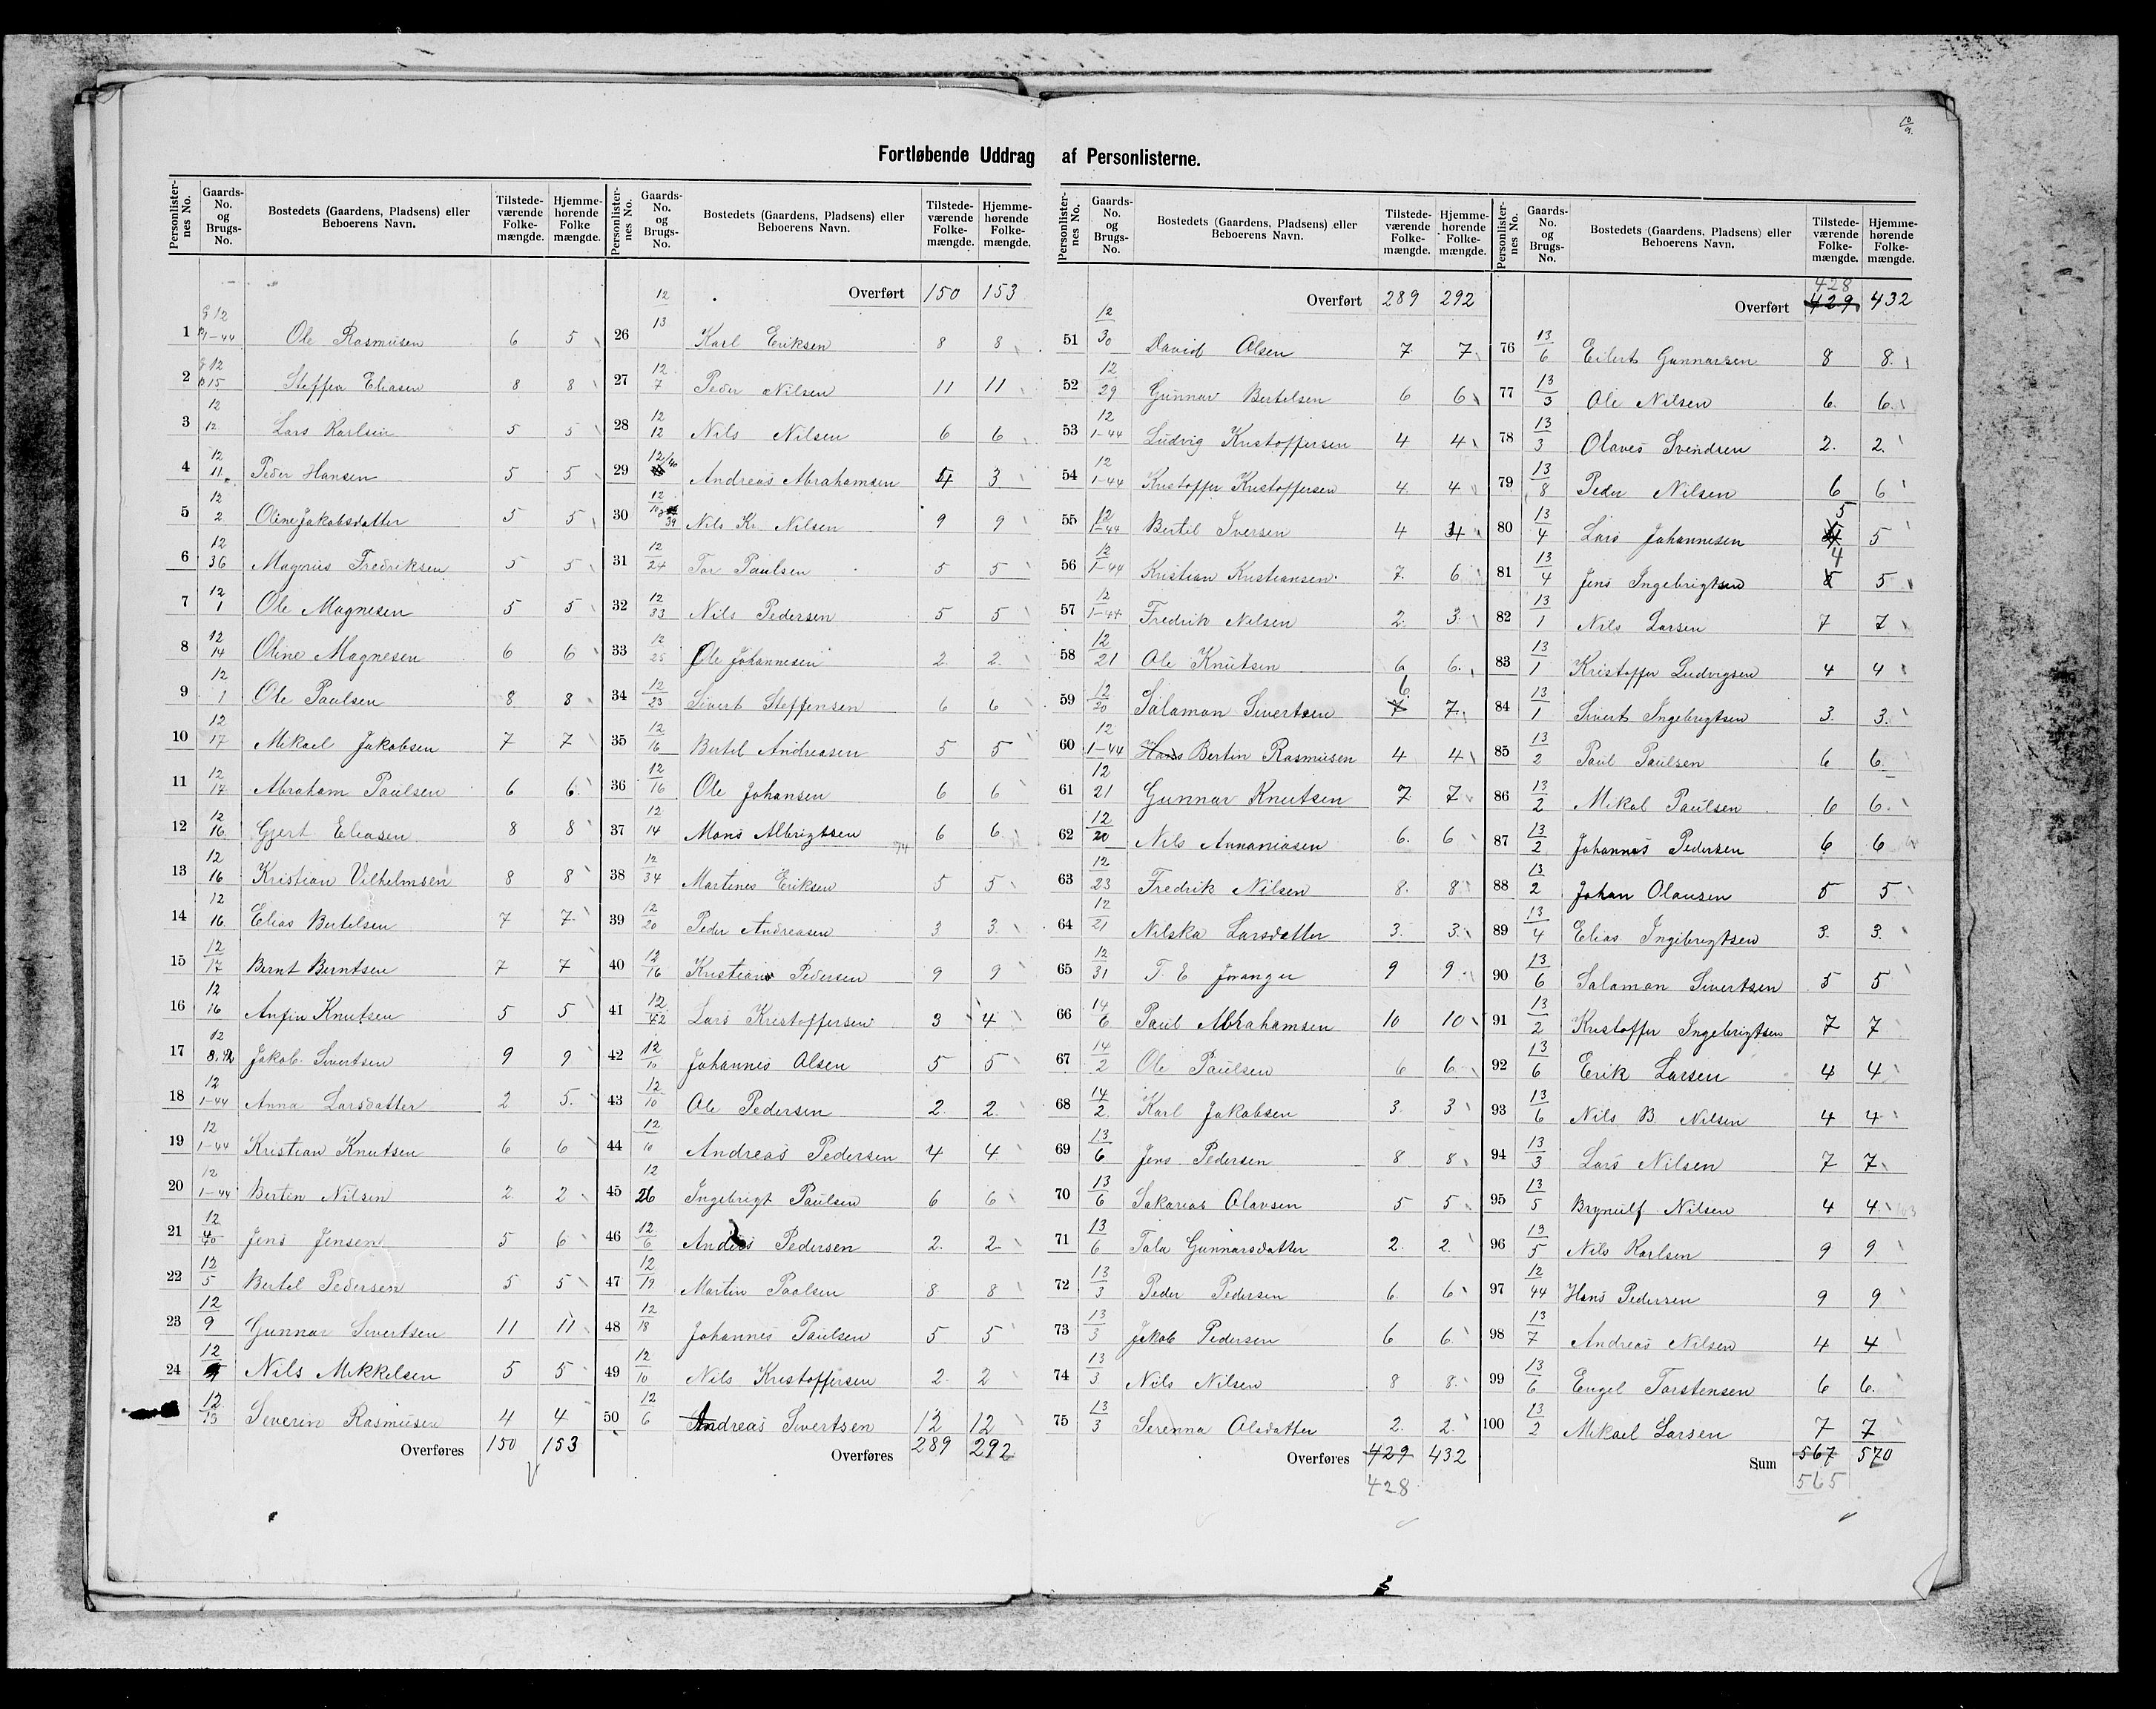 10/9.
Fortløbende Uddrag af Personlisterne.
Personlister-nes No. | Gaards-No. og Brugs-No. | Bostedets (Gaardens, Pladsens) eller Beboerens Navn. | Tilstede-værende Folke-mængde. | Hjemme-hørende Folke mængde.
1 | G 12 / B 1-44 | Ole Rasmusen | 6 | 5
2 | G 12 / B 15 | Steffen Eliasen | 8 | 8
3 | 12/12 | Lars Karlsen | 5 | 5
4 | 12/11 | Peder Hansen | 5 | 5
5 | 12/2 | Oline Jakobsdatter | 5 | 5
6 | 12/36 | Magnus Fredriksen | 5 | 5
7 | 12/1 | Ole Magnesen | 5 | 5
8 | 12/14 | Oline Magnesen | 6 | 6
9 | 12/1 | Ole Paulsen | 8 | 8
10 | 12/17 | Mikael Jakobsen | 7 | 7
11 | 12/17 | Abraham Paulsen | 6 | 6
12 | 12/16 | Gjert Eliasen | 8 | 8
13 | 12/16 | Kristian Vilhelmsen | 8 | 8
14 | 12/16 | Elias Bertelsen | 7 | 7
15 | 12/17 | Bernt Berntsen | 7 | 7
16 | 12/16 | Anfin Knutsen | 5 | 5
17 | 12/8, | Jakob Sivertsen | 9 | 9
18 | 12/1-44 | Anna Larsdatter | 2 | 5
19 | 12/1-44 | Kristian Knutsen | 6 | 6
20 | 12/1-44 | Bertin Nilsen | 2 | 2
21 | 12/40 | Jens Jensen | 5 | 6
22 | 12/5 | Bertel Pedersen | 5 | 5
23 | 12/9 | Gunnar Sivertsen | 11 | 11
24 | 12 | Nils Mikkelsen | 5 | 5
12/13 | Severin Rasmusen | 4 | 4
Overføres 150 153
Personlister-nes No. | Gaards-No. og Brugs-No. | Bostedets (Gaardens, Pladsens) eller Beboerens Navn. | Tilstede-værende Folke-mængde. | Hjemme-hørende Folke-mængde.
Overført 150 153
26 | 12/13 | Karl Eriksen | 8 | 8
27 | 12/7 | Peder Nilsen | 11 | 11
28 | 12/12 | Nils Nilsen | 6 | 6
29 | 12/40 | Andreas Abrahamsen | 4 | 3
30 | 12/39 | Nils Kr. Nilsen | 9 | 9
31 | 12/24 | Tor Paulsen | 5 | 5
32 | 12/33 | Nils Pedersen | 5 | 5
33 | 12/25 | Ole Johannesen | 2 | 2
34 | 12/23 | Sivert Steffensen | 6 | 6
35 | 12/16 | Bertel Andreasen | 5 | 5
36 | 12/16 | Ole Johansen | 6 | 6
37 | 12/14 | Mons Albrigtsen | 6 | 6
74
38 | 12/34 | Martines Eriksen | 5 | 5
39 | 12/20 | Peder Andreasen | 3 | 3
40 | 12/16 | Kristian Pedersen | 9 | 9
41 | 12/42 | Lars Kristoffersen | 3 | 4
42 | 12/10 | Johannes Olsen | 5 | 5
43 | 12/10 | Ole Pedersen | 2 | 2
44 | 12/10 | Andreas Pedersen | 4 | 4
45 | 12/26 | Ingebrigt Paulsen | 6 | 6
46 | 12/6 | Andreas Pedersen | 2 | 2
47 | 12/19 | Martin Paalsen | 8 | 8
48 | 12/18 | Johannes Paulsen | 5 | 5
49 | 12/10 | Nils Kristoffersen | 2 | 2
50 | 12/6 | Andreas Sivertsen | 12 | 12
Overføres 289 292
Personlister-nes No. | Gaards-No. og Brugs-No. | Bostedets (Gaardens, Pladsens) eller Beboerens Navn. | Tilstede-værende Folke-mængde. | Hjemme-hørende Folke-mængde.
Overført 289 292
51 | 12/30 | David Olsen | 7 | 7
52 | 12/29 | Gunnar Bertelsen | 6 | 6
53 | 12/1-44 | Ludvig Kristoffersen | 4 | 4
54 | 12/1-44 | Kristoffer Kristoffersen | 4 | 4
55 | 12/1-44 | Bertil Iversen | 4 | 4
56 | 12/1-44 | Kristian Kristiansen | 7 | 6
57 | 12/1-44 | Fredrik Nilsen | 2 | 3
58 | 12/21 | Ole Knutsen | 6 | 6
59 | 12/20 | Salamon Sivertsen | 7 6 | 7
60 | 12/1-44 | Hans Bertin Rasmusen | 4 | 4
61 | 12/21 | Gunnar Knutsen | 7 | 7
62 | 12/20 | Nils Annaniasen | 6 | 6
63 | 12/23 | Fredrik Nilsen | 8 | 8
64 | 12/21 | Nilska Larsdatter | 3 | 3
65 | 12/31 | T. E Joranger | 9 | 9
66 | 14/6 | Paul Abrahamsen | 10 | 10
67 | 14/2 | Ole Paulsen | 6 | 6
68 | 14/2 | Karl Jakobsen | 3 | 3
69 | 13/6 | Jens Pedersen | 8 | 8
70 | 13/6 | Sakarias Olavsen | 5 | 5
71 | 13/6 | Tala Gunnarsdatter | 2 | 2
72 | 13/3 | Peder Pedersen | 6 | 6
73 | 13/3 | Jakob Pedersen | 6 | 6
74 | 13/3 | Nils Nilsen | 8 | 8
75 | 13/3 | Serenna Olsdatter | 2 | 2
Overføres 429 432
428
Personlister-nes No. | Gaards-No. og Brugs-No. | Bostedets (Gaardens, Pladsens) eller Beboerens Navn. | Tilstede-værende Folke-mængde. | Hjemme-hørende Folke-mængde.
428
Overført 429 432
76 | 13/6 | Eilert Gunnarsen | 8 | 8
77 | 13/3 | Ole Nilsen | 6 | 6
78 | 13/3 | Olaves Svendsen | 2 | 2
79 | 13/8 | Peder Nilsen | 6 | 6
80 | 13/4 | Lars Johannesen | 5 | 5
81 | 13/4 | Jens Ingebrigtsen | 5 4 | 5
82 | 13/1 | Nils Larsen | 7 | 7
83 | 13/1 | Kristoffer Ludvigsen | 4 | 4
84 | 13/1 | Sivert Ingebrigtsen | 3 | 3
85 | 13/2 | Paul Paulsen | 6 | 6
86 | 13/2 | Mikal Paulsen | 6 | 6
87 | 13/2 | Johannes Pedersen | 6 | 6
88 | 13/2 | Johan Olausen | 5 | 5
89 | 13/4 | Elias Ingebrigtsen | 3 | 3
90 | 13/6 | Salamon Sivertsen | 5 | 5
91 | 13/2 | Kristoffer Ingebrigtsen | 7 | 7
92 | 13/6 | Erik Larsen | 4 | 4
93 | 13/6 | Nils B. Nilsen | 4 | 4
94 | 13/3 | Lars Nilsen | 7 | 7
95 | 13/5 | Brynulf Nilsen | 4 | 4
96 | 13/5 | Nils Karlsen | 9 | 9
97 | 12/44 | Hans Pedersen | 9 | 9
98 | 13/7 | Andreas Nilsen | 4 | 4
99 | 13/6 | Engel Torstensen | 6 | 6
100 | 13/2 | Mikael Larsen | 7 | 7
Sum 567 570
565